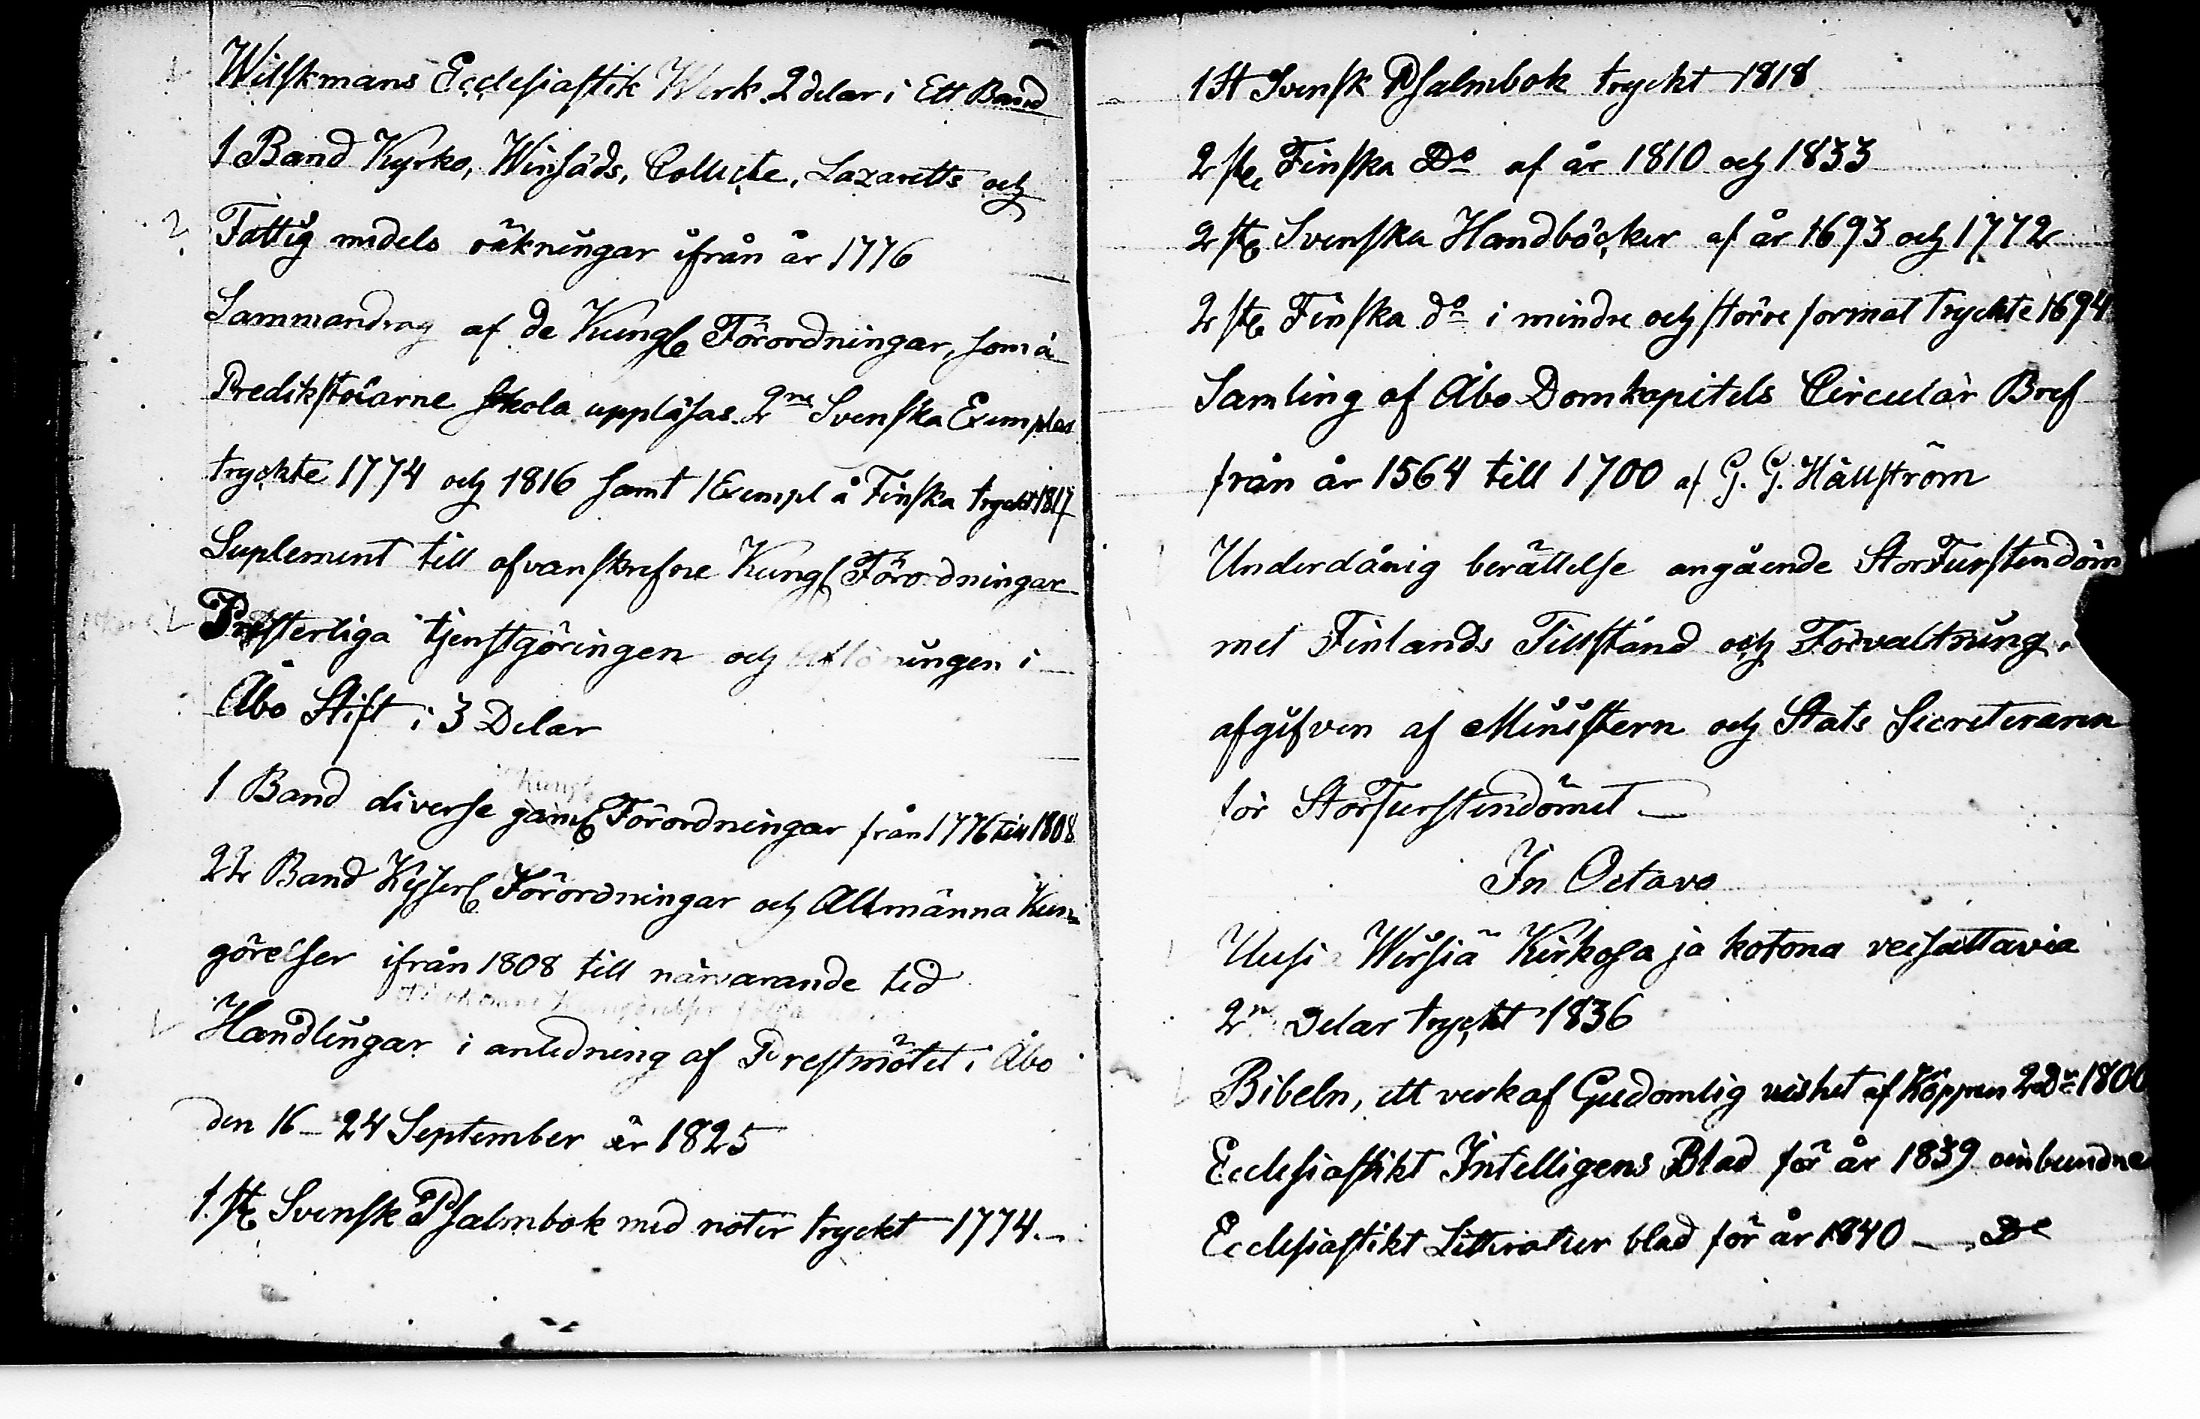 Wilskmans Ecclesiastik Werk 2 delar i Ett Band
1 Band Kyrko, Winsäds, Collecte, Lazaretts och
Fattig medels räkningar ifrån år 1776
Sammandrag af de Kungl Förordningar, som å
Predikstolarne skola uppläsas. 2ne Svenska Exemplar
tryckte 1774 och 1816 samt 1 Exempl å Finska tryckt 1817
Suplement till ofvanskrefne Kungl Förordningar
Presterliga tjenstgöringen och aflöningen i
Åbo Stift i 3 Delar
Kungl
1 Band diverse gaml Förordningar från 1776 till 1808
22 Band Kejserl Förordningar och Allmänna Kun=
görelser ifrån 1808 till närvarande tid
Handlingar i anledning af Prestmötet i Åbo
den 16 - 24 September år 1825
1 st Svensk Psalmbok med noter tryckt 1774.
1 st Svensk Psalmbok tryckt 1818
2 st Finska Do af år 1810 och 1833
2 st Svenska Handböcker af år 1693 och 1772
2 st Finska do i mindre och större format tryckte 1694
Samling af Åbo Domkapitels Circulär Bref
från år 1564 till 1700 af G. G. Hällström
Underdånig berättelse angående StorFurstendöm
met Finlands Tillstånd och Förvaltning,
afgifven af Ministern och Stats Secreteraren
för StorFurstendömet —
In Octavo
Uusi Wirsiä Kirkosa ja kotona veisattavia
2ne Delar tryckt 1836
Bibeln, ett verk af Gudomlig vishet af Köppen 2 Dr 1800
Ecclesiastikt Intelligens Blad för år 1839 oinbundne
Ecclesiastikt Litteratur blad för år 1840 — Do